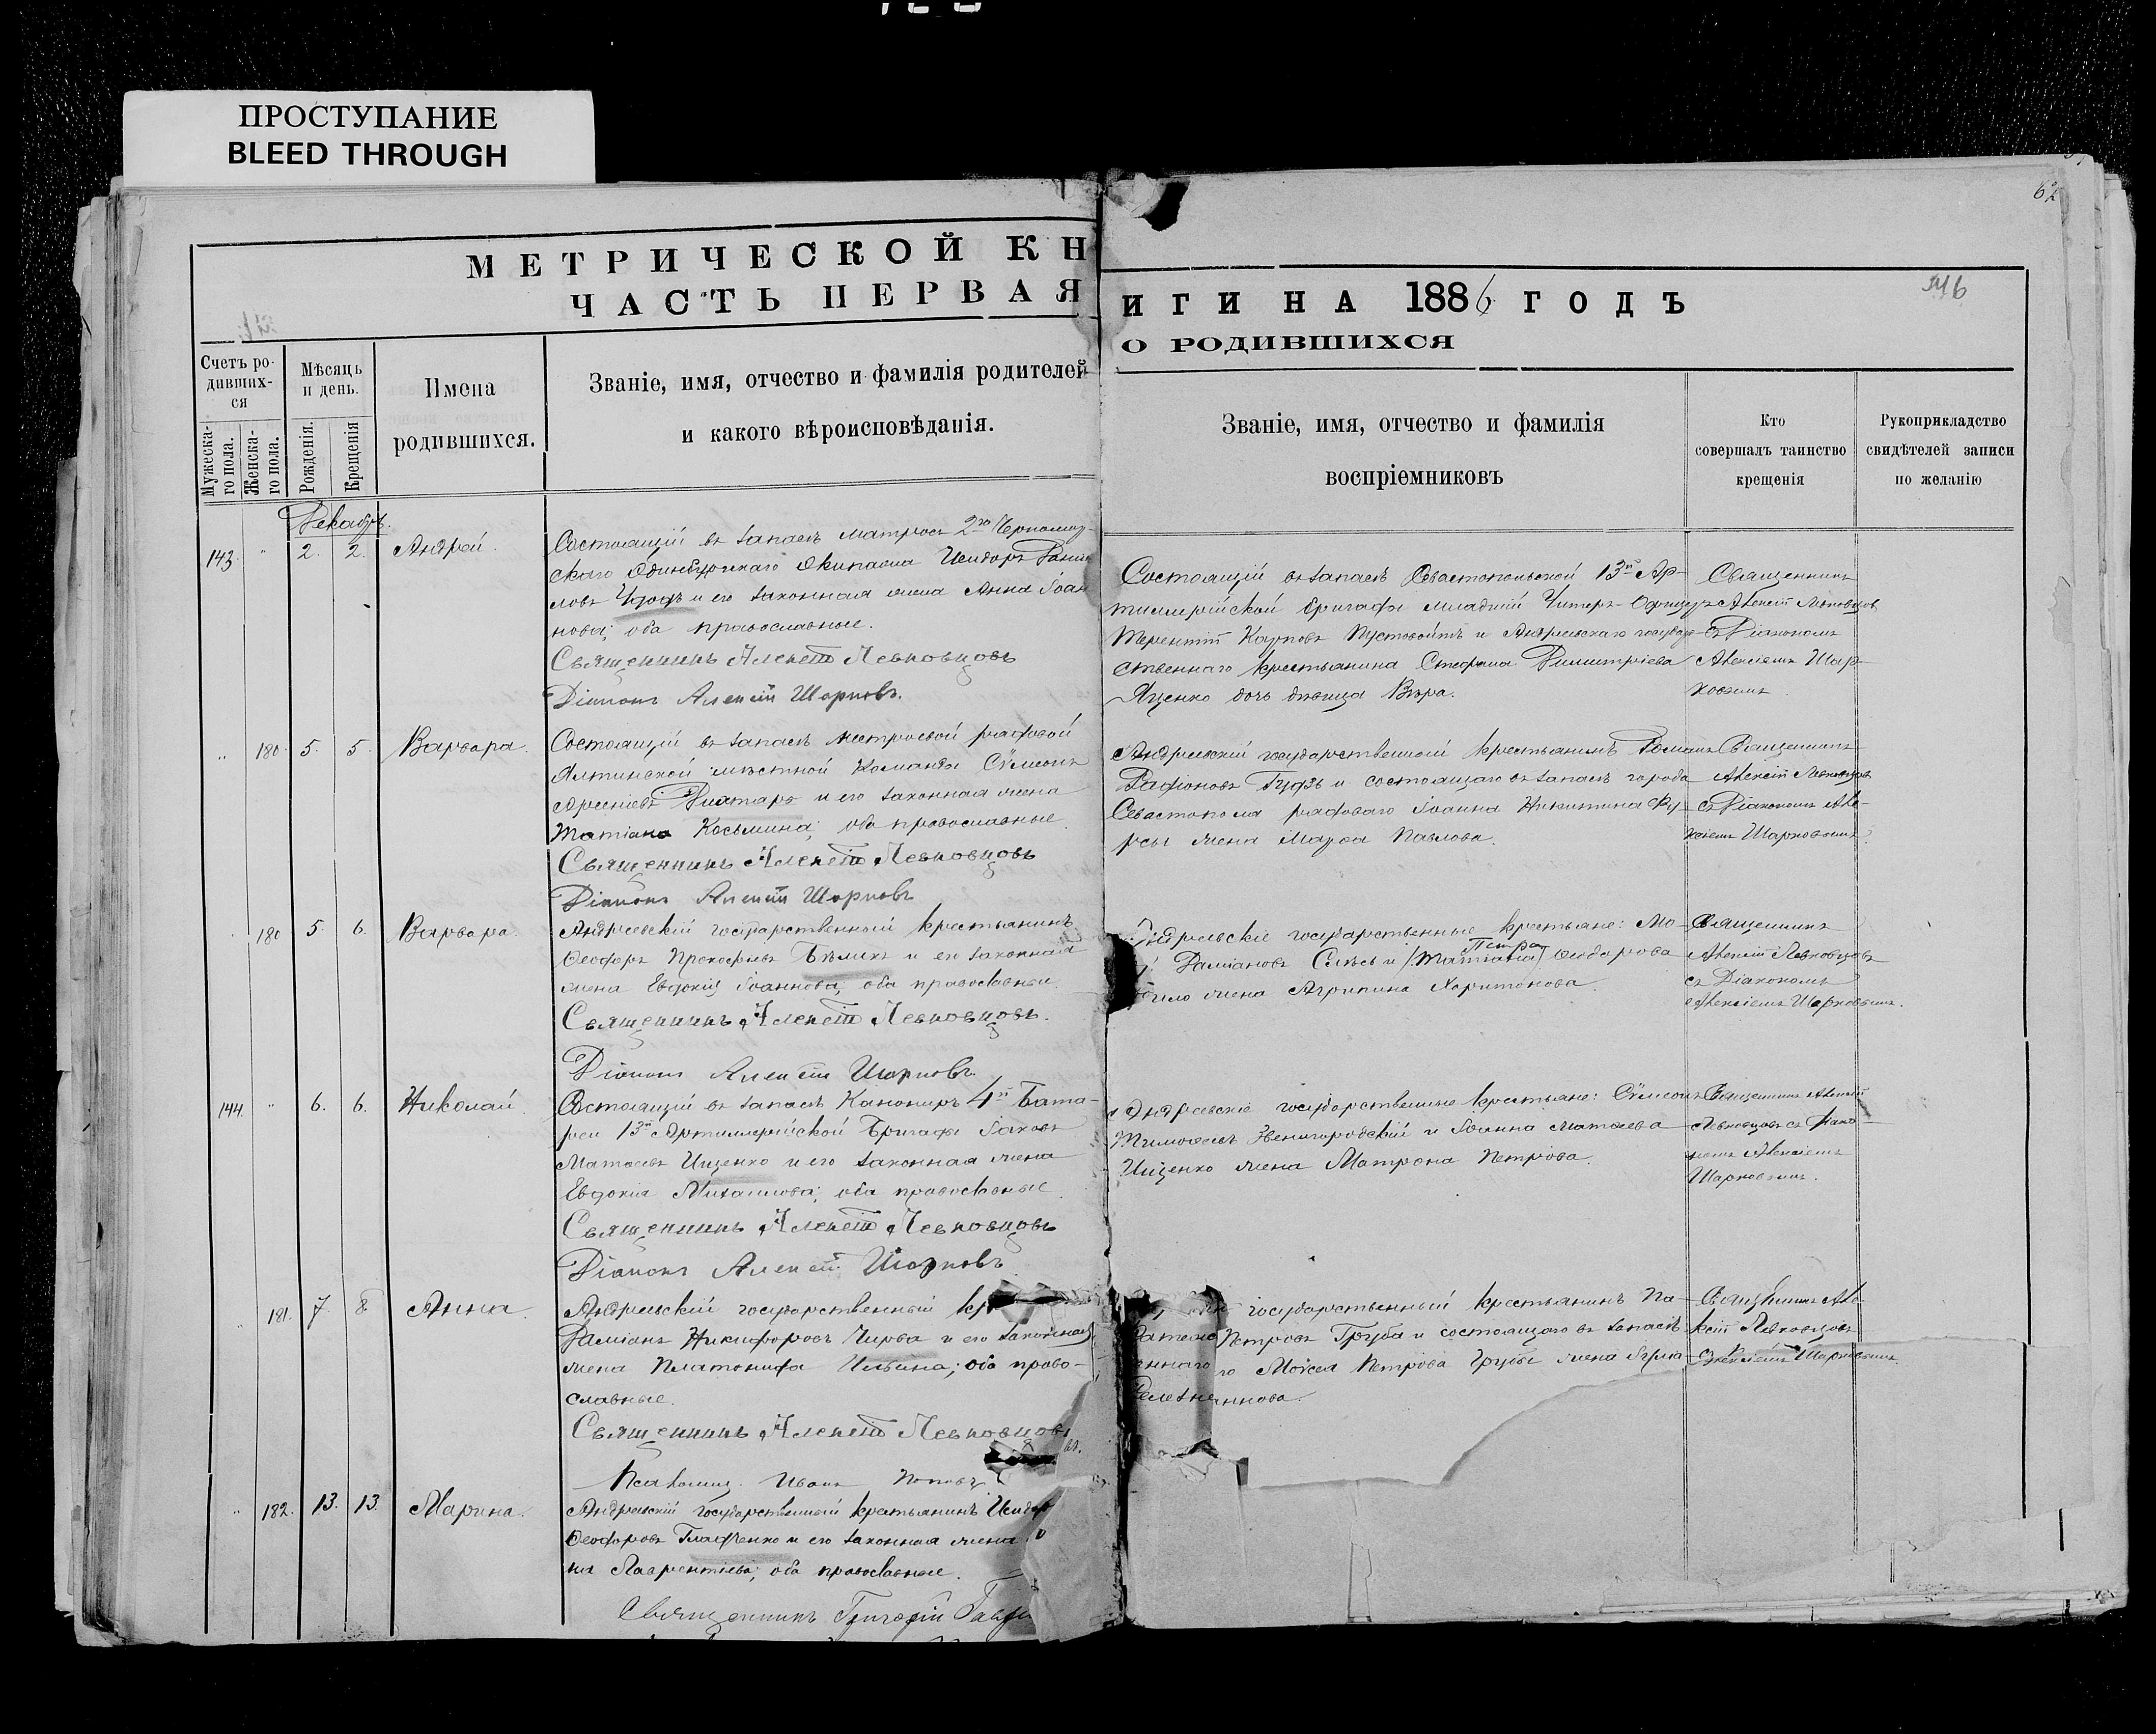 ПРОСТУПАНИЕ
BLEED THROUGH
62
МЕТРИЧЕСКОЙ КН
ЧАСТЬ ПЕРВАЯ
ИГИ НА 1886 ГОДЪ
О РОДИВШИХСЯ
Счетъ ро-
дивших-
ся
Мѣсяцъ
и день.
Имена
родившихся.
Званіе, имя, отчество и фамилія родителей
и какого вѣроисповѣданія.
Мужеска-
го пола.
Женска-
го пола.
Рожденія.
Крещенія
Званіе, имя, отчество и фамилія
воспріемниковъ
Кто
совершалъ таинство
крещенія
Рукоприкладство
свидѣтелей записи
по желанію
Декабрь.
143. " 2. 2. Андрей.
Состоящій въ запасѣ матросъ 2го
скаго экипажа Исидоръ
и его законная жена Анна Іоан
нова; оба православные.
Священникъ Алексѣй Левковцовъ
Діаконъ Алексій Шарковъ.
Состоящій въ запасѣ Севастопольской 13й Ар-
тиллерійской бригады младшій Унтеръ-Офицеръ
Терентій Карповъ Пустовойтъ и Андреевскаго государ-
ственнаго крестьянина Стефана Димитріева
Яценко дочь дѣвица Вѣра.
Священникъ
Алексій Левковцовъ
съ Діакономъ
Алексіемъ Шар-
ковымъ.
" 180. 5. 5. Варвара.
Состоящій въ запасѣ нестроевой рядовой
Ялтинской мѣстной Команды Сѵмеонъ
Арсеніевъ и его законная жена
Татіана Косьмина; оба православные.
Священникъ Алексѣй Левковцовъ
Діаконъ Алексій Шарковъ
Андреевскій государственный крестьянинъ Романъ
Радіоновъ Гудзь и состоящаго въ запасѣ города
Севастополя рядоваго Іоанна Никитина Фу
рсы жена Марѳа Павлова.
Священникъ
Алексій Левковцовъ
съ Діакономъ Але-
ксіемъ Шарковымъ
180 5. 6. Варвара.
Андреевскій государственный крестьянинъ
Ѳеодоръ Прокофьевъ Бѣликъ и его законная
жена Евдокія Іоаннова; оба православные.
Священникъ Алексѣй Левковцовъ.
Діаконъ Алексій Шарковъ.
государственные крестьяне: Мо-
Даміановъ и (Татіана) Петра Ѳеодорова
жена Агрипина Харитонова.
Священникъ
Алексій Левковцовъ
съ Діакономъ
Алексіемъ Шарковымъ.
144. " 6. 6. Николай
Состоящій въ запасѣ Канониръ 4й Бата-
реи 13й Артиллерійской Бригады Іаковъ
Матѳеевъ Ищенко и его законная жена
Евдокія Михаилова; оба православные.
Священникъ Алексѣй Левковцовъ
Діаконъ Алексій Шарковъ
Андреевскіе государственные крестьяне: Сѵмеонъ
Тимоѳеевъ Звенигородскій и Іоанна Матѳеева
Ищенко жена Матрона Петрова.
Священникъ Алексій
Левковцовъ съ Діако-
номъ Алексіемъ
Шарковымъ.
" 181. 7. 8. Анна.
Андреевскій государственный кр
Даміанъ Никифоровъ Чирва и его законная
жена Платонида Ильина; оба право-
славные.
Священникъ Алексѣй Левковцовъ
Псаломщ. Иванъ Поповъ
государственный крестьянинъ Па-
Петровъ Груба и состоящаго въ запасѣ
Моисея Петрова Грубы жена
Священникъ Але-
ксій Левковцовъ
Алексіемъ Шарковымъ
" 182. 13. 13. Марина.
Андреевскій государственный крестьянинъ Исидор
Ѳеодоровъ Гладченко и его законная жена
Лаврентіева; оба православные.
Священникъ Григорій